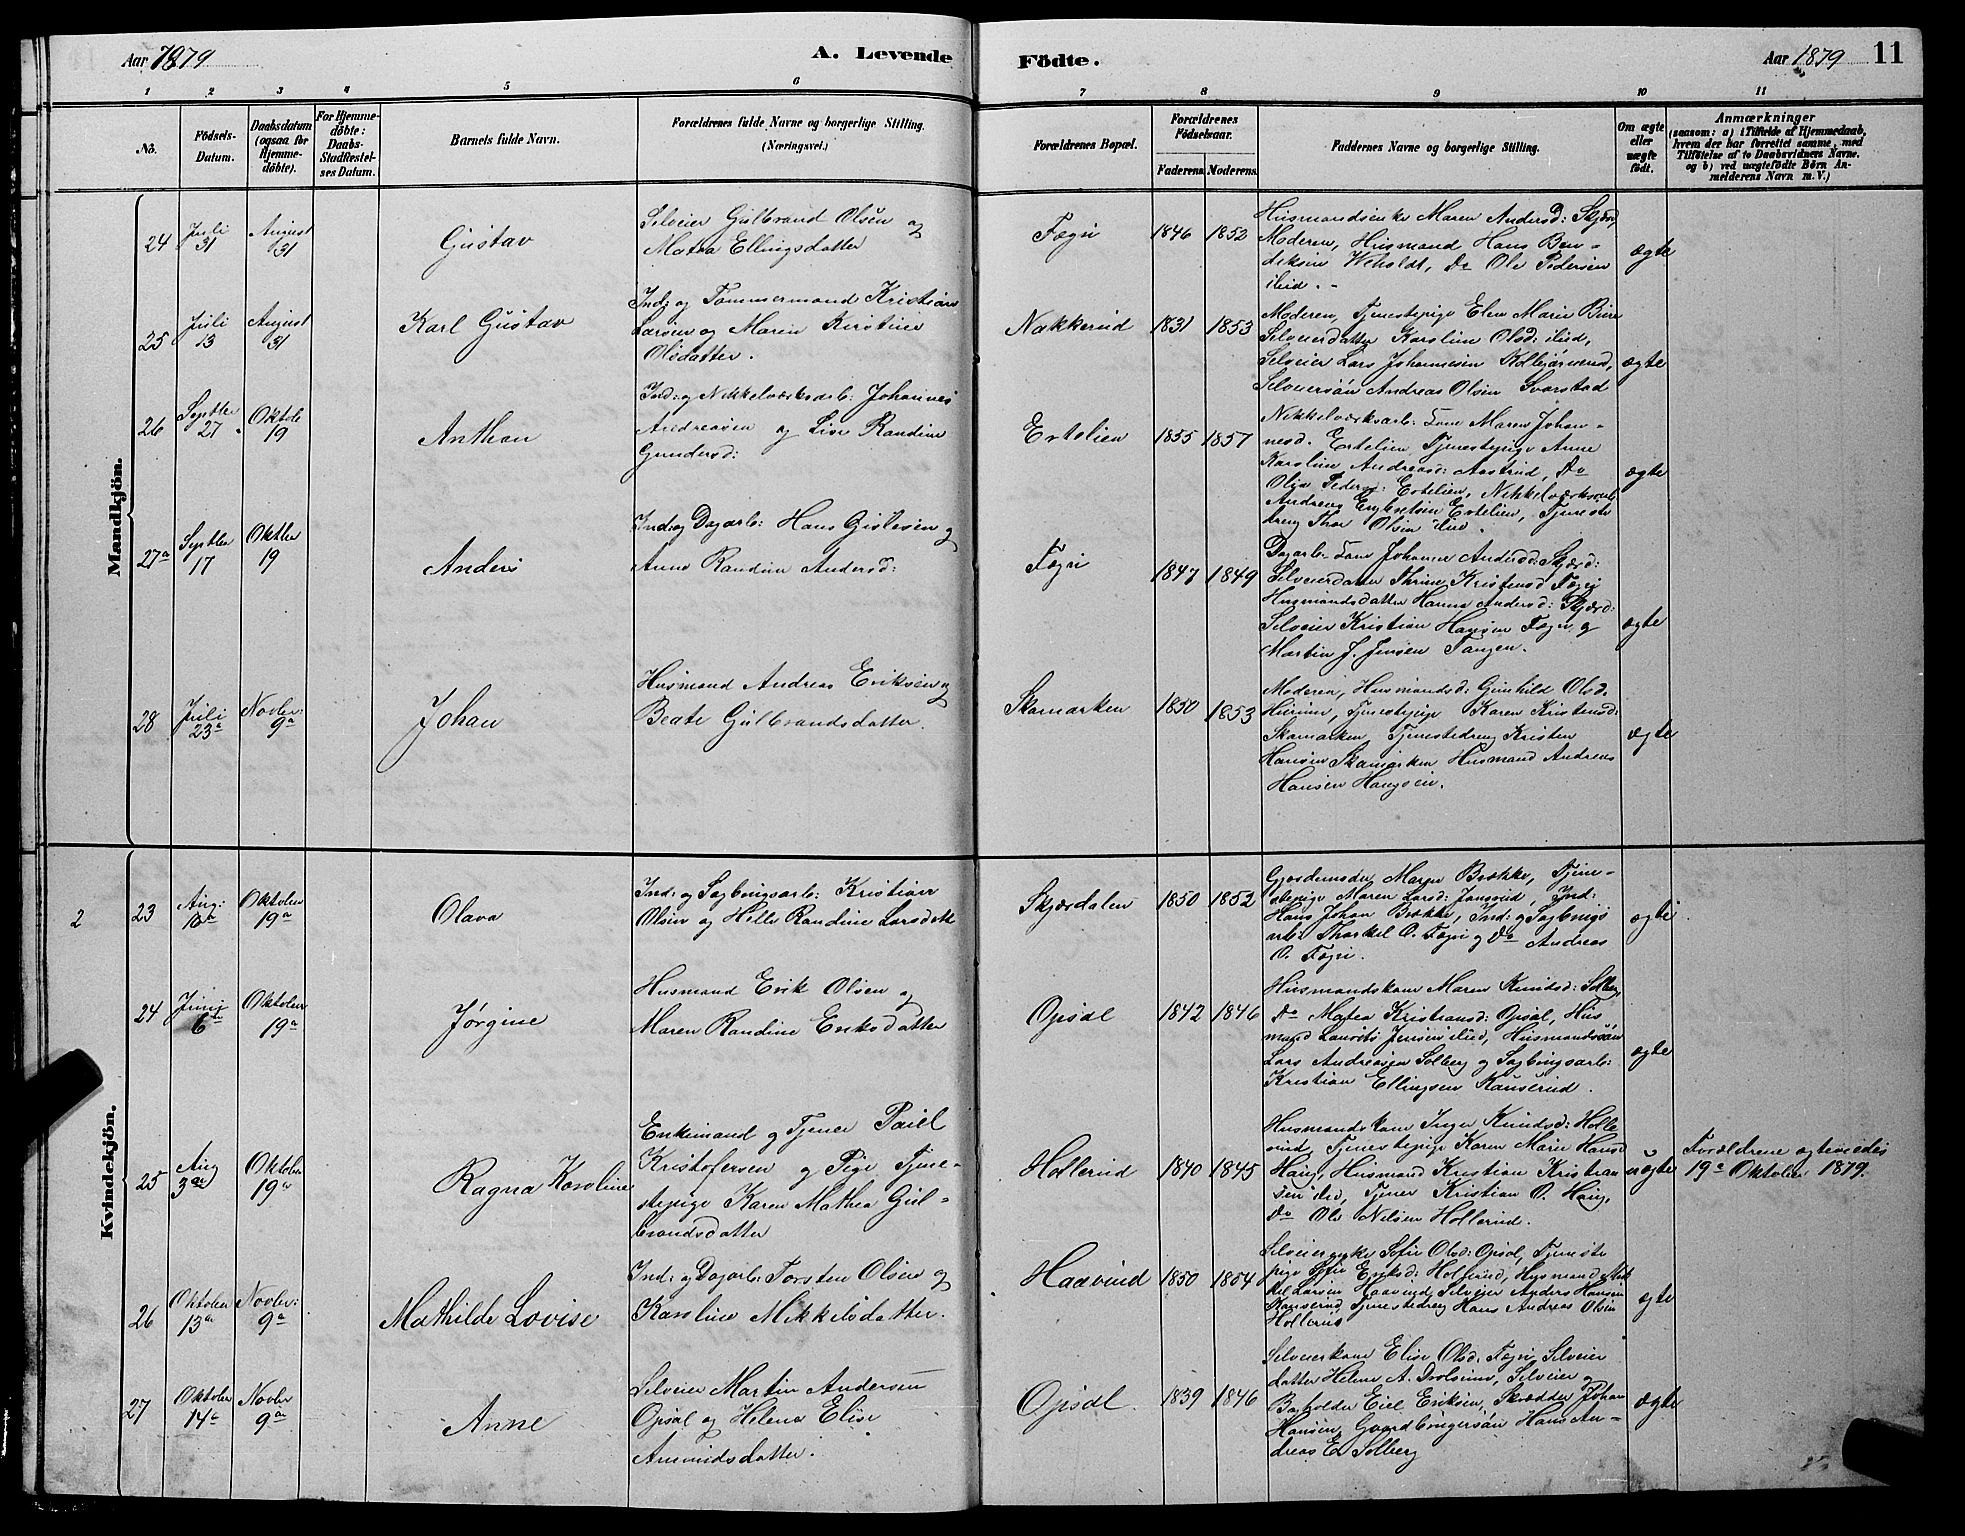 Aar 1879
A. Levende
Födte.
Aar 1879
11
1 2 3 4 5 6
7 8 9 10 11
No.
Födsels-
Datum.
Daabsdatum
(ogsaa for
Hjemme-
döbte).
For Hjemme-
döbte:
Daabs-
Stadfæstel-
ses Datum.
Barnets fulde Navn.
Forældrenes fulde Navne og borgerlige Stilling.
(Næringsvei.)
Forældrenes Bopæl.
Forældrenes
Födselsaar.
Faderens. Moderens.
Faddernes Navne og borgerlige Stilling.
Om ægte
eller
uægte
födt.
Anmærkninger
(saasom: a) i Tilfælde af Hjemmedaab,
hvem der har forrettet samme, med
Tilföielse af to Daabsvidners Navne.
og b) ved uægtefödte Börn An-
melderens Navn m. V.)
Mandkjön.
24
Juli
31
August
31
Gustav
Selveier Gulbrand Olsen og
Matea Ellingsdatter
Fægri
1846 1852
Husmandsenke Maren Andersd: Skjærd,
Moderen, Husmand Hans Ben-
diksen Weholdt, Do Ole Pedersen
ibid. -
ægte
25
Juli
13
August
31
Karl Gustav
Ind: og Tømmermand Kristian
Larsen og Maren Kirstine
Olsdatter.
Nakkerud
1831 1853
Moderen, Tjenestepige Elen Marie Bure
Selveierdatter Karoline Olsd: ibid,
Selveier Lars Johannesen
Selveiersøn Andreas Olsen Svarstad
ægte
26
Septbr
27
Oktob
19
Anthon
Ind: og Nikkelværksarb: Johannes
Andreasen og Lise Randine
Gundersd:
Ertelien
1855 1857
Nikkelværksarb: Kone Maren Johan-
nesd. Ertelien Tjenestepige Anne
Karoline Andreasd: Aastrud, Do
Oline Pedersd: Ertelien, Nikkelværksarb
Andreas Engbretsen Ertelien, Tjeneste
dreng Thor Olsen ibid.
ægte
27a
Septber
17
Oktber
19
Anders
Ind: og Dagarb: Hans Gislesen og
Anne Randine Andersd:
Fægri
1847 1849
Dagarb: Kone Johanne Andersd: Skjærd:
Selveierdatter Thrine Kristensd Fægri
Husmandsdatter Hanna Andersd: Skjærd:
Selveier Kristian Hansen Fægri og
Martin J. Jensen Tangen.
ægte
28
Juli
23a
Novber:
9a
Johan
Husmand Andreas Eriksen og
Beate Gulbrandsdatter.
Skamarken
1850 1853
Moderen, Husmandsd: Gunhild Olsd.
Tjenestepige Karen Kristensd:
Skamarken, Tjenestedreng Kristen
Hansen Skamarken Husmand Andreas
Hansen Haugseie.
ægte
Kvindekjön.
2
23
Aug:
Oktober
19a
Olava
Ind: og Sagbrugsarb: Kristian
Olsen og Helle Randine Larsdatt
Skjærdalen
1850 1852
Gjordemoder Maren Brække, Tjene-
stepige Maren Larsd: Ind:
Hans Johan Brække, Ind: og Sagbrugs
arb: Thorkel O. Fægri og Do Andreas
O. Fægri.
ægte
24
Juni
6te
Oktober
19a
Jørgine
Husmand Erik Olsen og
Maren Randine Eriksdatter
Opsal
1842 1846
Husmandskone Maren Knudsd: Solberg,
Do Matea Kristiansd: Opsal, Hus
mand Laurits Jensen ibid, Husmandssøn
Lars Andreasen Solberg og Sagbrugsarb:
Kristian Ellingsen Rauserud.
ægte
25
Aug
3die
Oktober
19a
Ragna Karoline
Enkemand og Tjener Paul
Kristofersen og Pige Tjene-
stepige Karen Mathea Gul-
brandsdatter
Hollerud
1840 1845
Husmandskone Inger Knudsd: Holle
rud Tjenestepige Karen Marie Hansd
Haug, Husmand Kristian Kristian
sen ibid, Tjener Kristian O. Haug,
Do Ole Nilsen Hollerud.
uægte
Forældrene ægteviedes
19a Oktober 1879.
26
Oktober
13a
Novber:
9a
Mathilde Lovise
Ind: og Dagarb: Torsten Olsen og
Karoline Mikkelsdatter.
Haavind
1850 1854
Selveierenke Sofie Olsd: Opsal, Tjeneste
pige Sofie Eriksd: Hollerud, Husmand Mik
kel Larsen Haavind, Selveier Anders Hansen
Rauserud, Tjenestedreng Hans Andreas Olsen
Hollerud
ægte
27
Oktober
14a
Novber
9a
Anne
Selveier Martin Andersen
Opsal og Helena Elise
Amundsdatter.
Opsal.
1839 1846
Selveierkone Elise Olsd. Fægri, Selveier
datter Helene A. Drolsum, Selveier og
Bogholder Eiel Eriksen, Skrædder Johan
Hansen, Gaardbrugersøn Hans An-
dreas E. Solberg
ægte